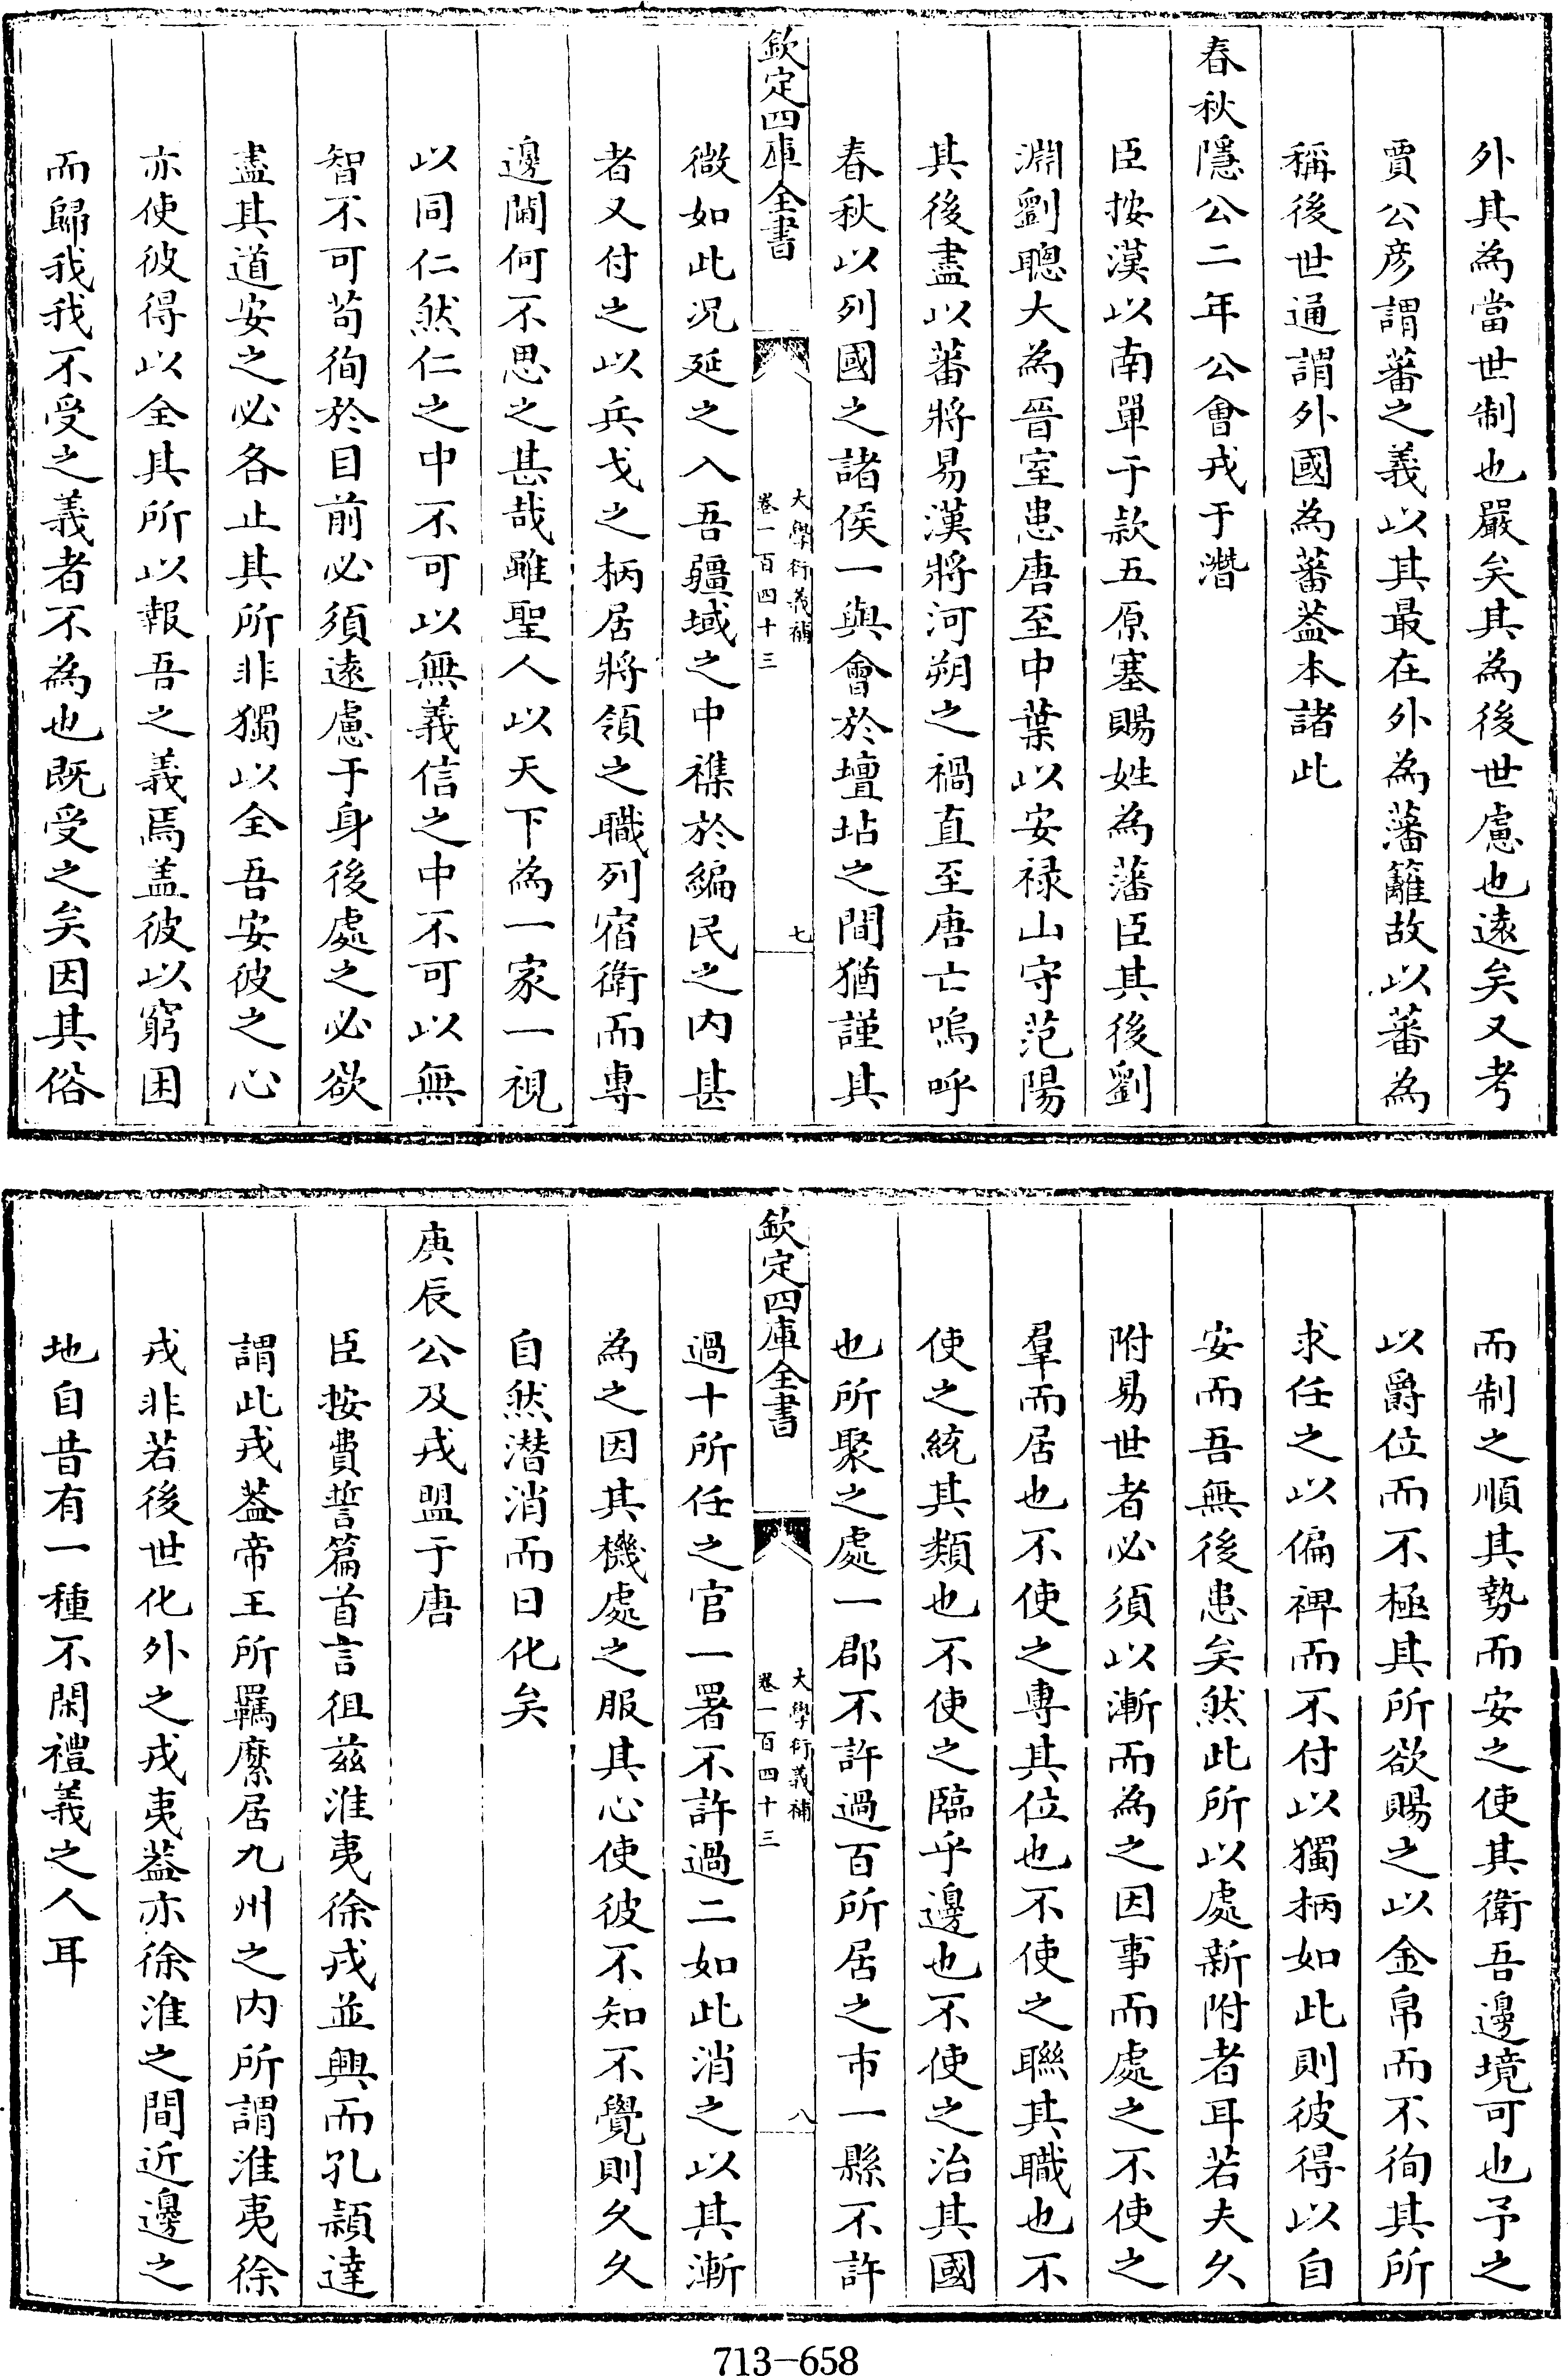 外其為當世制也嚴矣其為後世慮也遠矣又考
賈公彦謂蕃之義以其最在外為藩籬故以蕃為
稱後世通謂外國為蕃葢本諸此
春秋隱公二年公會戎于濳
臣按漢以南單于款五原塞賜姓為藩臣其後劉
淵劉聰大為晉室患唐至中葉以安禄山守范陽
其後盡以蕃將易漢將河朔之禍直至唐亡嗚呼
春秋以列國之諸侯一與會於壇坫之間猶謹其
欽定四庫全書
大學衍義補
卷一百四十三
七
微如此况延之入吾疆域之中襍於編民之内甚
者又付之以兵戈之柄居將領之職列宿衛而專
邊閫何不思之甚哉雖聖人以天下為一家一視
以同仁然仁之中不可以無義信之中不可以無
智不可苟徇於目前必須遠慮于身後處之必欲
盡其道安之必各止其所非獨以全吾安彼之心
亦使彼得以全其所以報吾之義焉盖彼以窮困
而歸我我不受之義者不為也既受之矣因其俗
而制之順其勢而安之使其衛吾邊境可也予之
以爵位而不極其所欲賜之以金帛而不徇其所
求任之以偏裨而不付以獨柄如此則彼得以自
安而吾無後患矣然此所以處新附者耳若夫久
附易世者必須以漸而為之因事而處之不使之
羣而居也不使之專其位也不使之聯其職也不
使之統其類也不使之臨乎邊也不使之治其國
也所聚之處一郡不許過百所居之市一縣不許
欽定四庫全書
大學衍義補
卷一百四十三
八
過十所任之官一署不許過二如此消之以其漸
為之因其機處之服其心使彼不知不覺則久久
自然潜消而日化矣
庚辰公及戎盟于唐
臣按費誓篇首言徂兹淮夷徐戎並興而孔頴達
謂此戎葢帝王所羈縻居九州之内所謂淮夷徐
戎非若後世化外之戎夷葢亦徐淮之間近邊之
地自昔有一種不閑禮義之人耳
713-658